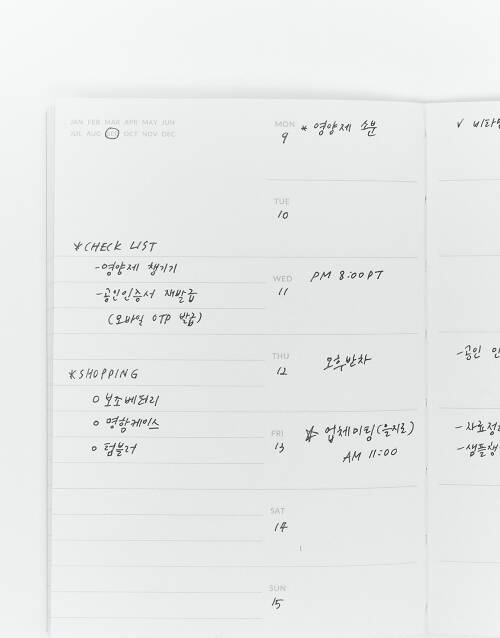 JAN FEB MAR APR MAY JUN
JUL AUG SEP OCT NOV DEC
*CHECK LIST
-영양제 챙기기
-공인인증서 재발급
(모바일 OTP 발급)
*SHOPPING
○ 보조배터리
○ 명함케이스
○ 텀블러
MON
9
* 영양제 소분
TUE
10
WED
11
PM 8:00 PT
THU
12
오후반차
FRI
13
☆ 업체미팅(을지로)
AM 11:00
SAT
14
SUN
15
√ 비타민
-공인 인
-자료정리
-샘플챙